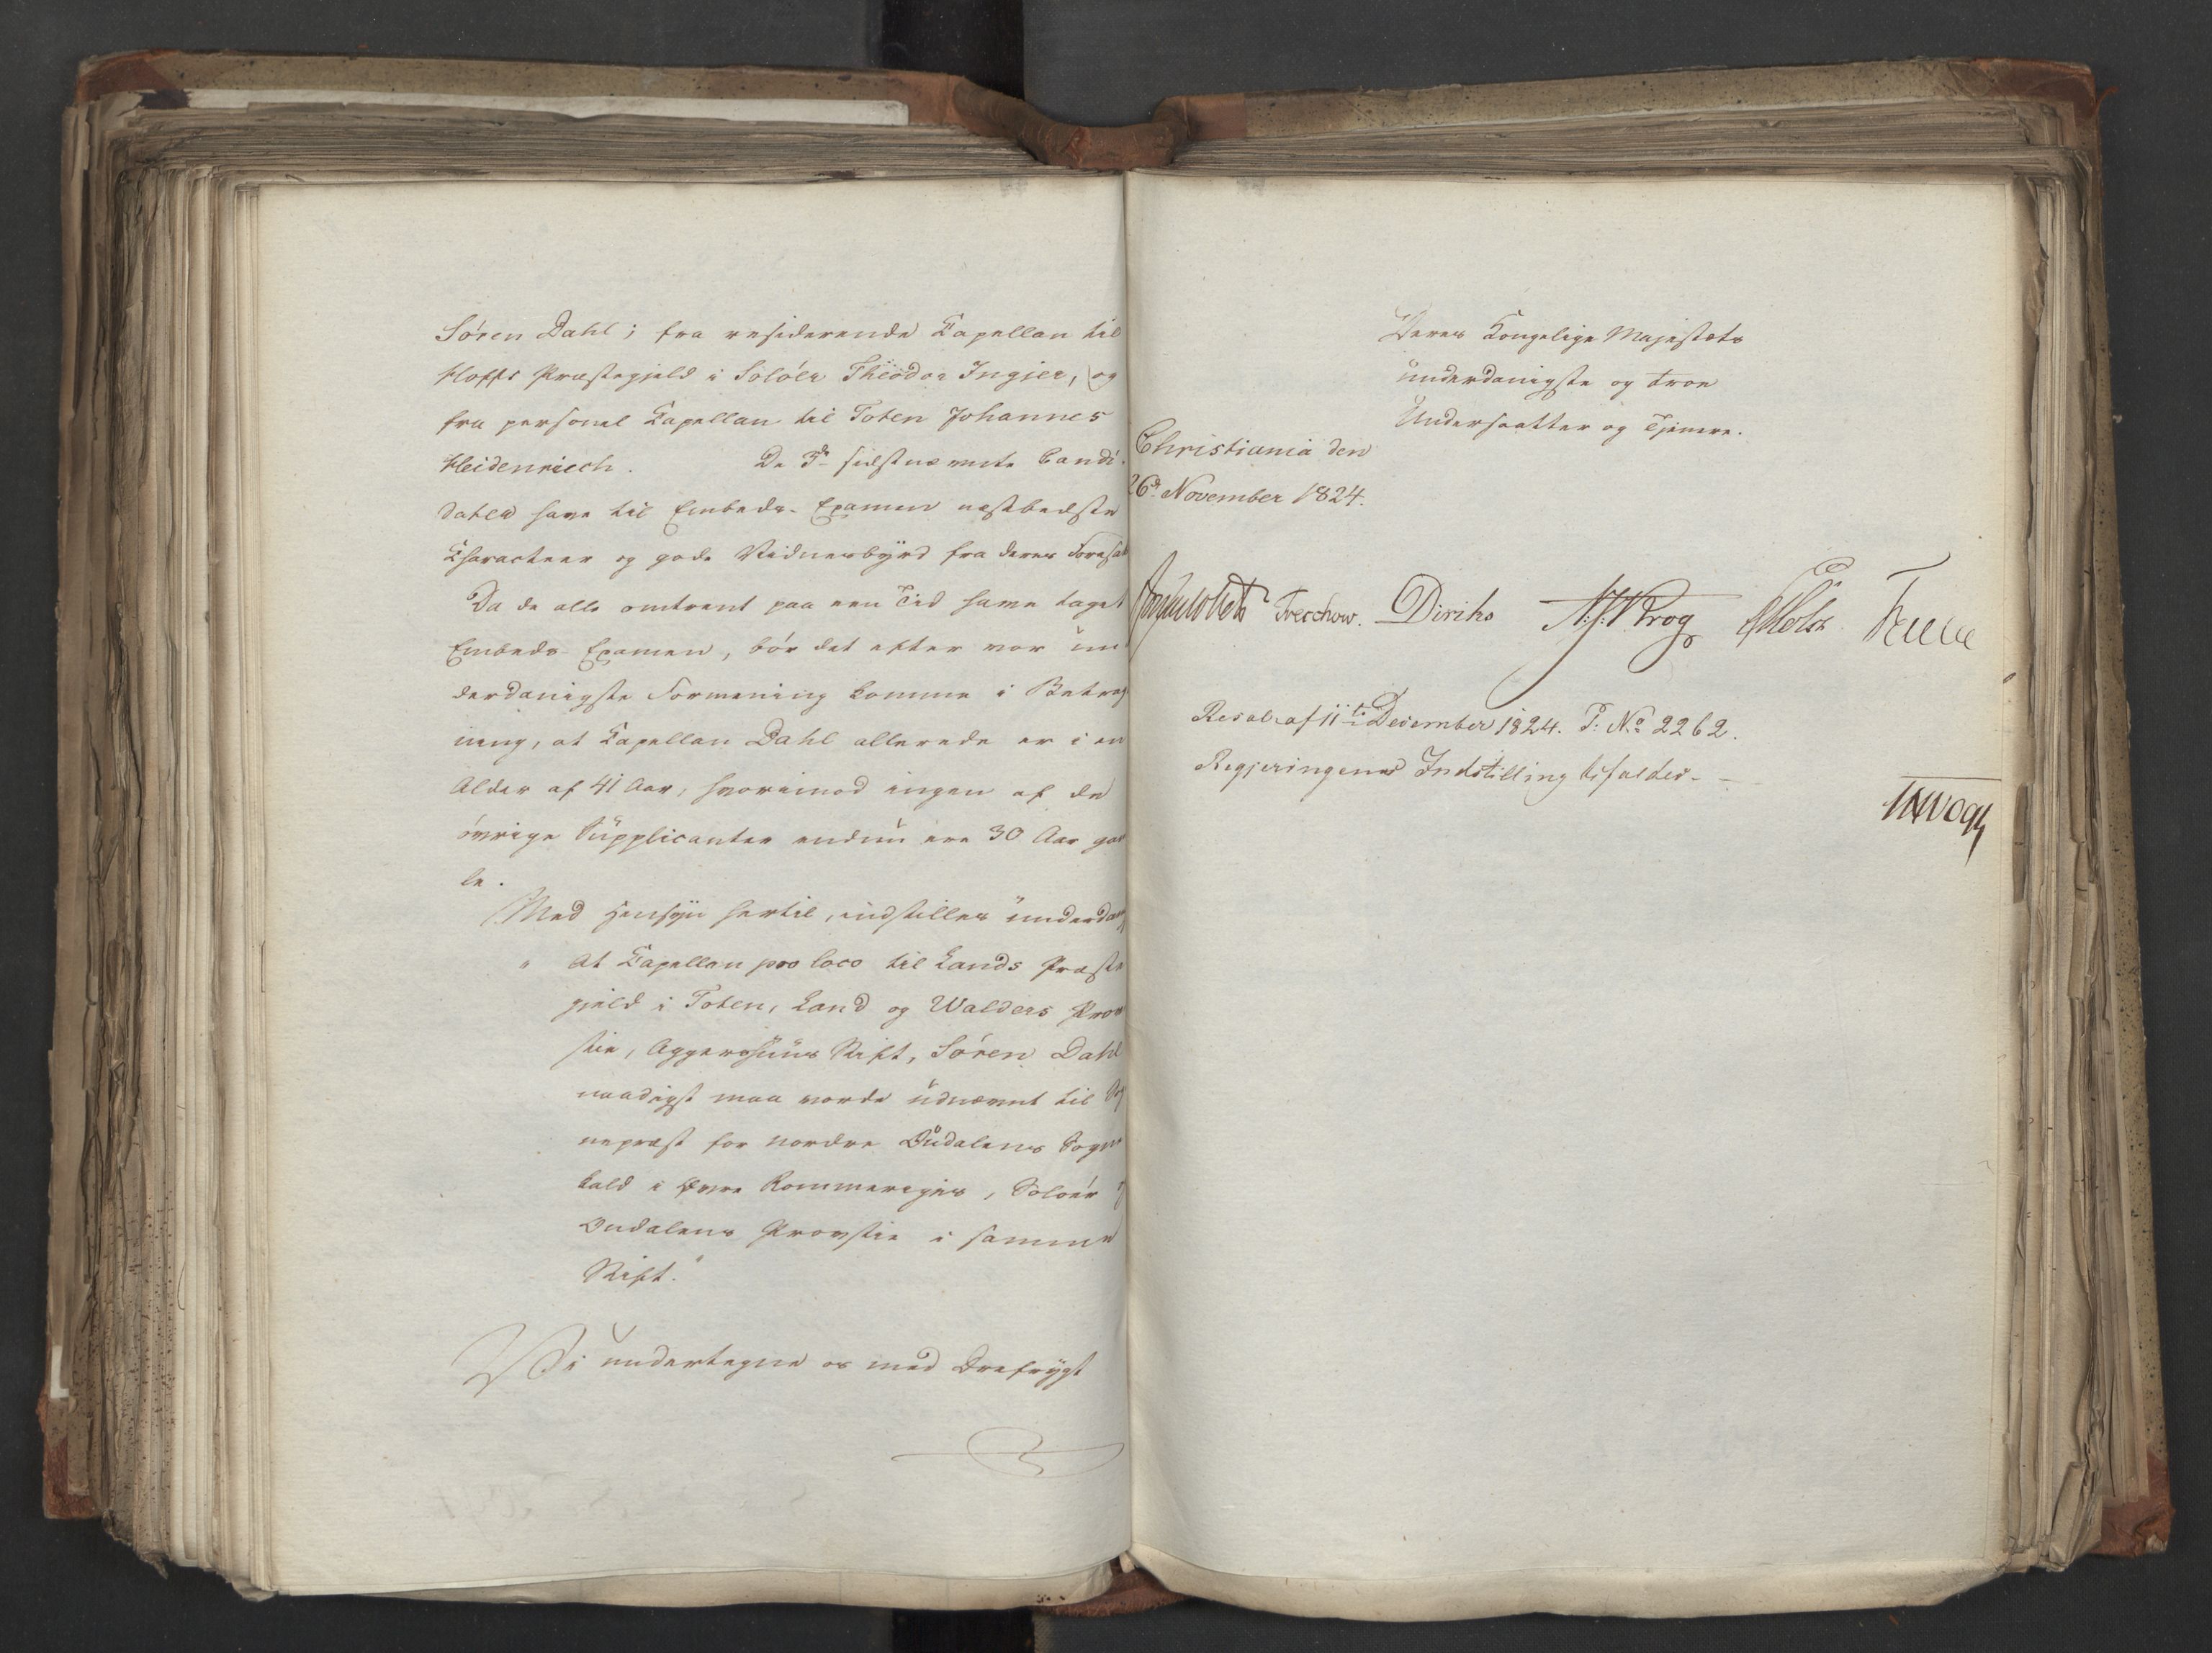 Sören Dahl; fra residerende Kapellan til
Hoffs Præstegjeld i Solöer Theodor Ingjer, og
fra personel Kapellan til Toten Johannes
Heidenriech. De 3de sidstnævnte Candi-
dater have til Embeds-Examen næstbedste
Characteer og gode Vidnesbyrd fra deres Foresat
Da de alle omtrent paa een Tid have taget
Embeds Examen, bör det efter vor un
derdanigste Formening komme i Betragt
ning, at Kapellan Dahl allerede er i en
Alder af 41 Aar, hvorimod ingen af de
övrige Supplicanter endnu ere 30 Aar gam
le.
Med Hensyn hertil, indstilles underdan
" At Kapellan pro loco til Lands Præste
gjeld i Toten, Land og Walders Prov
stie, Aggershuus Stift, Sören Dahl
naadigst maa vorde udnævnt til Sog
nepræst for nordre Oudalens Sogne
kald i Övre Rommerigies, Soloer og
Oudalens Provstie i samme
Stift."
Vi undertegne os med Ærefrygt
Deres Kongelige Majestæts
underdanigste og troe
Undersaatter og Tjenere.
Christiania den
26de November 1824.
Treschow. Diriks A.J. Krog Holst
Resol: af 11te December 1824. P: No 2262.
Regjeringens Indstilling bifaldes.
Vogt